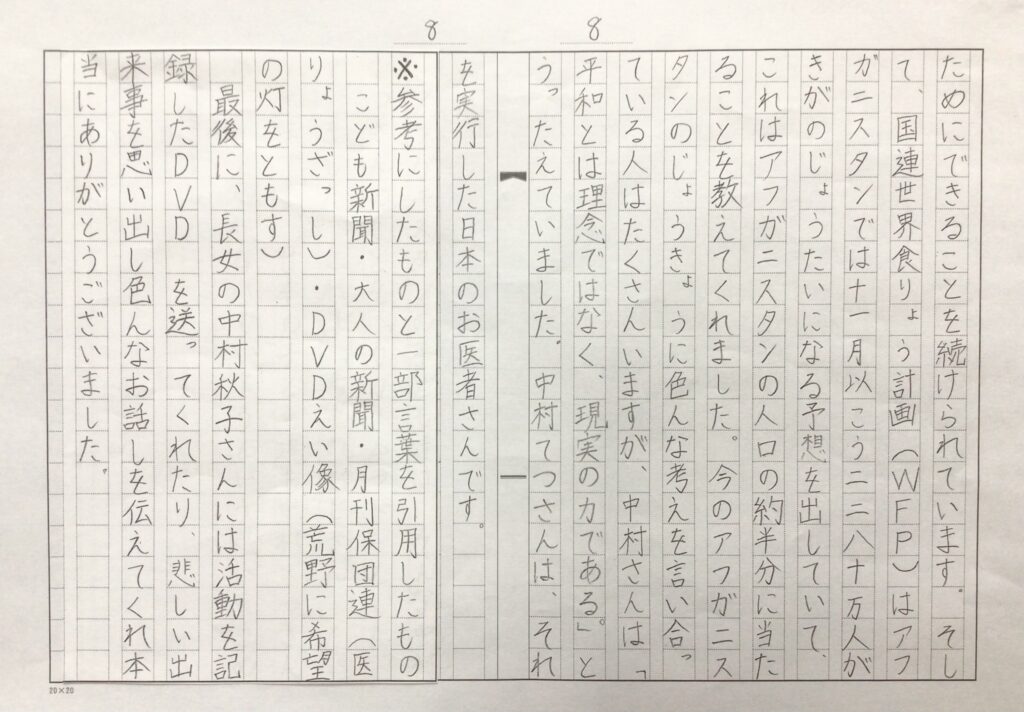 8
8
ためにできることを続けられています。そし
て、国連世界食りょう計画(WFP)はアフ
ガニスタンでは十一月以こう二二八十万人が
きがのじょうたいになる予想を出していて、
これはアフガニスタンの人口の約半分に当た
ることを教えてくれました。今のアフガニス
タンのじょうきょうに色んな考えを言い合っ
ている人はたくさんいますが、中村さんは「
平和とは理念ではなく、現実の力である。」と
うったえていました。中村てつさんは、それ
を実行した日本のお医者さんです。
※参考にしたものと一部言葉を引用したもの
こども新聞・大人の新聞・月刊保団連(医
りょうざっし)・DVDえい像(荒野に希望
の灯をともす)
最後に、長女の中村秋子さんには活動を記
録したDVD を送ってくれたり、悲しい出
来事を思い出し色んなお話しを伝えてくれ本
当にありがとうございました。
20×20